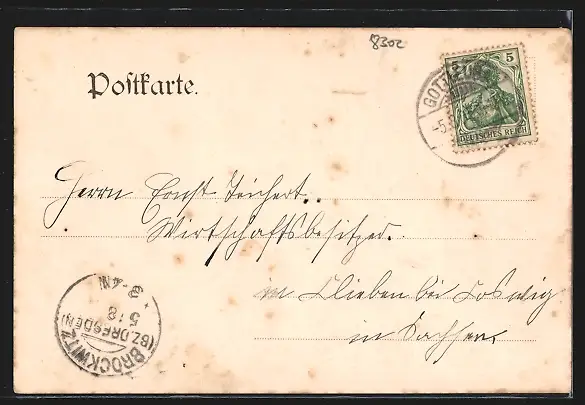 8302
Postkarte.
5
DEUTSCHES REICH
GOTTLEUBA
-5.
Herrn Ernst Teichert.
Wirtschaftsbesitzer.
in Clieben bei Coswig
in Sachsen.
BROCKWITZ
(BZ. DRESDEN)
5 / 8
4-N